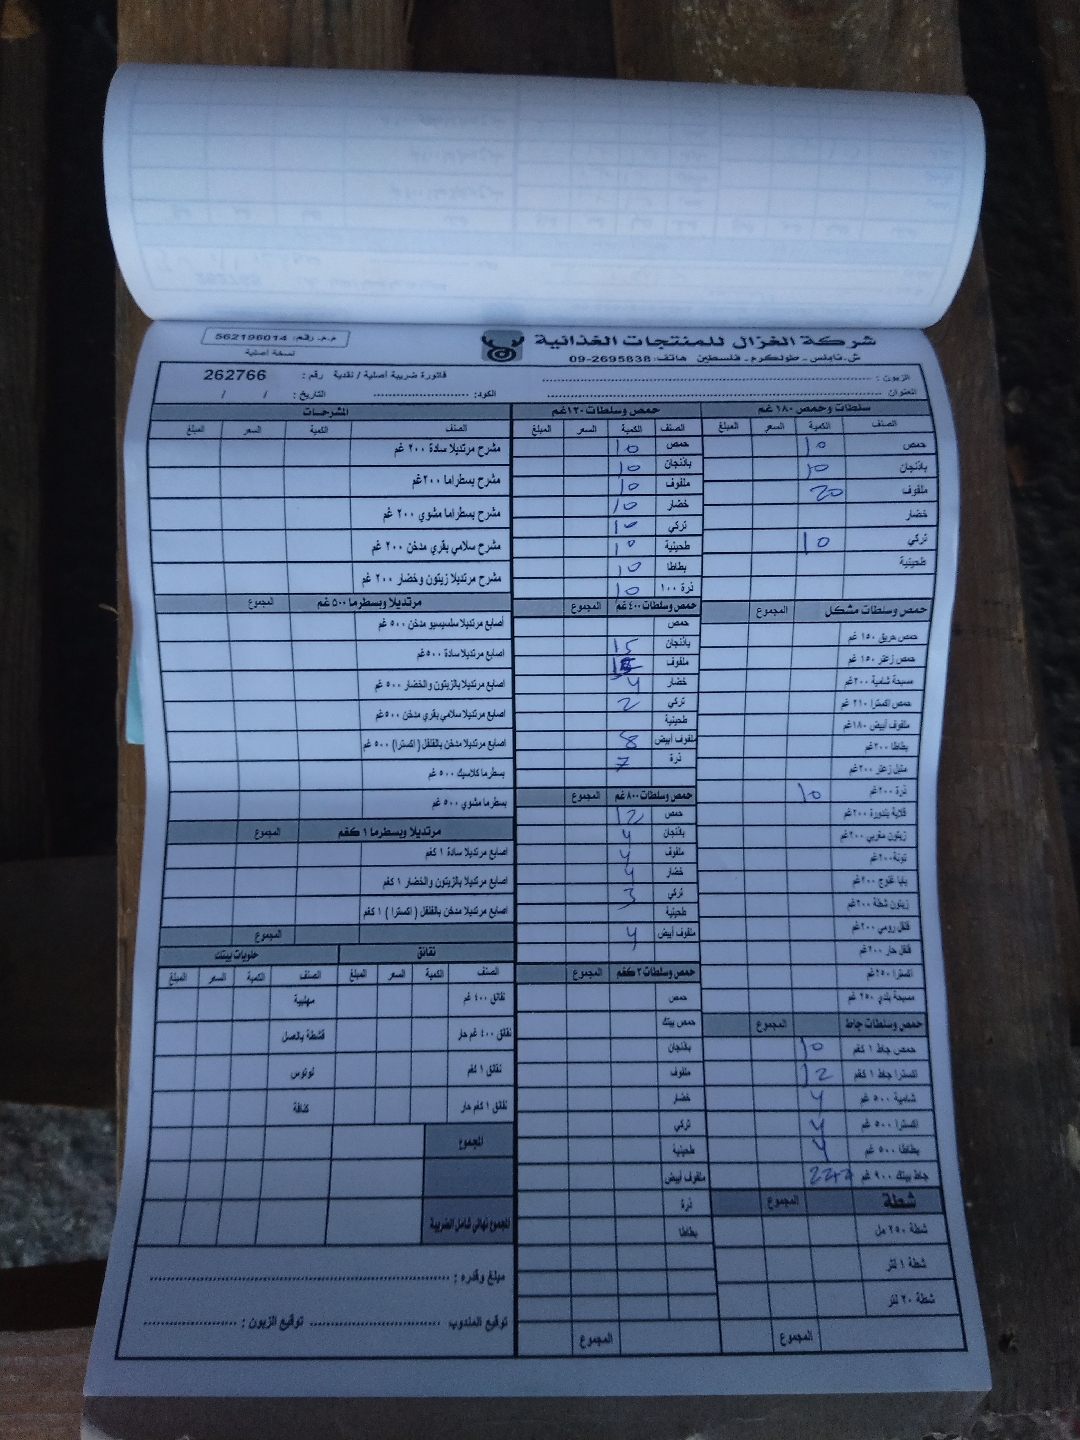 شركة الغزال للمنتجات الغذائية
ش.نابلس - طولكرم - فلسطين هاتف: 09-2695838
م.م. رقم: 562196014
نسخة اصلية
الزبون :
فاتورة ضريبية أصلية / نقدية رقم : 262766
العنوان :
الكود:
التاريخ : / /
سلطات وحمص ١٨٠ غم
الصنف الكمية السعر المبلغ
حمص 10
باذنجان 10
ملفوف 20
خضار
تركي 10
طحينية
حمص وسلطات مشكل المجموع
حمص حريق ١٥٠ غم
حمص زعتر ١٥٠ غم
مسبحة شامية ٢٠٠غم
حمص اكسترا ٢١٠ غم
ملفوف أبيض ١٨٠غم
بطاطا ٢٠٠غم
متبل زعتر ٢٠٠غم
ذرة ٢٠٠غم 10
قلاية بندورة ٢٠٠غم
زيتون مغربي ٢٠٠غم
تونة ٢٠٠غم
بابا غنوج ٢٠٠غم
زيتون شطة ٢٠٠غم
فلفل رومي ٢٠٠غم
فلفل حار ٢٠٠غم
اكسترا ٢٥٠غم
مسبحة بلدي ٢٥٠ غم
حمص وسلطات جاط المجموع
حمص جاط ١ كغم 10
اكسترا جاط ١ كغم 12
شامية ٥٠٠ غم 4
اكسترا ٥٠٠ غم 4
بطاطا ٥٠٠ غم 4
جاط بيتك ٩٠٠ غم
شطة المجموع
شطة ٢٥٠ مل
شطة ١ لتر
شطة ٢٠ لتر
المجموع
حمص وسلطات ١٢٠غم
الصنف الكمية السعر المبلغ
حمص 10
باذنجان 10
ملفوف 10
خضار 10
تركي 10
طحينية 10
بطاطا 10
ذرة ١٠٠ 10
حمص وسلطات ٤٠٠غم المجموع
حمص
باذنجان 15
ملفوف
خضار 4
تركي 2
طحينية
ملفوف أبيض 8
ذرة 7
حمص وسلطات ٨٠٠غم المجموع
حمص 12
باذنجان 4
ملفوف 4
خضار 4
تركي 3
طحينية
ملفوف أبيض 4
حمص وسلطات ٣ كغم المجموع
حمص
حمص بيتك
باذنجان
ملفوف
خضار
تركي
طحينية
ملفوف أبيض
ذرة
بطاطا
المجموع
المشرحات
الصنف الكمية السعر المبلغ
مشرح مرتديلا سادة ٢٠٠ غم
مشرح بسطراما ٢٠٠غم
مشرح بسطراما مشوي ٢٠٠ غم
مشرح سلامي بقري مدخن ٢٠٠ غم
مشرح مرتديلا زيتون وخضار ٢٠٠ غم
مرتديلا وبسطرما ٥٠٠ غم المجموع
أصابع مرتديلا سلسيسيو مدخن ٥٠٠ غم
اصابع مرتديلا سادة ٥٠٠غم
اصابع مرتديلا بالزيتون والخضار ٥٠٠ غم
اصابع مرتديلا سلامي بقري مدخن ٥٠٠غم
اصابع مرتديلا مدخن بالفلفل ( اكسترا) ٥٠٠ غم
بسطرما كلاسيك ٥٠٠ غم
بسطرما مشوي ٥٠٠ غم
مرتديلا وبسطرما ١ كغم المجموع
اصابع مرتديلا سادة ١ كغم
اصابع مرتديلا بالزيتون والخضار ١ كغم
اصابع مرتديلا مدخن بالفلفل ( اكسترا ) ١ كغم
المجموع
نقانق حلويات بيتك
الصنف الكمية السعر المبلغ الصنف الكمية السعر المبلغ
نقانق ٤٠٠ غم مهلبية
نقانق ٤٠٠ غم حار قشطة بالعسل
نقانق ١ كغم لوتوس
نقانق ١ كغم حار كنافة
المجموع
المجموع نهائي شامل الضريبة
مبلغ وقدره :
توقيع المندوب توقيع الزبون :